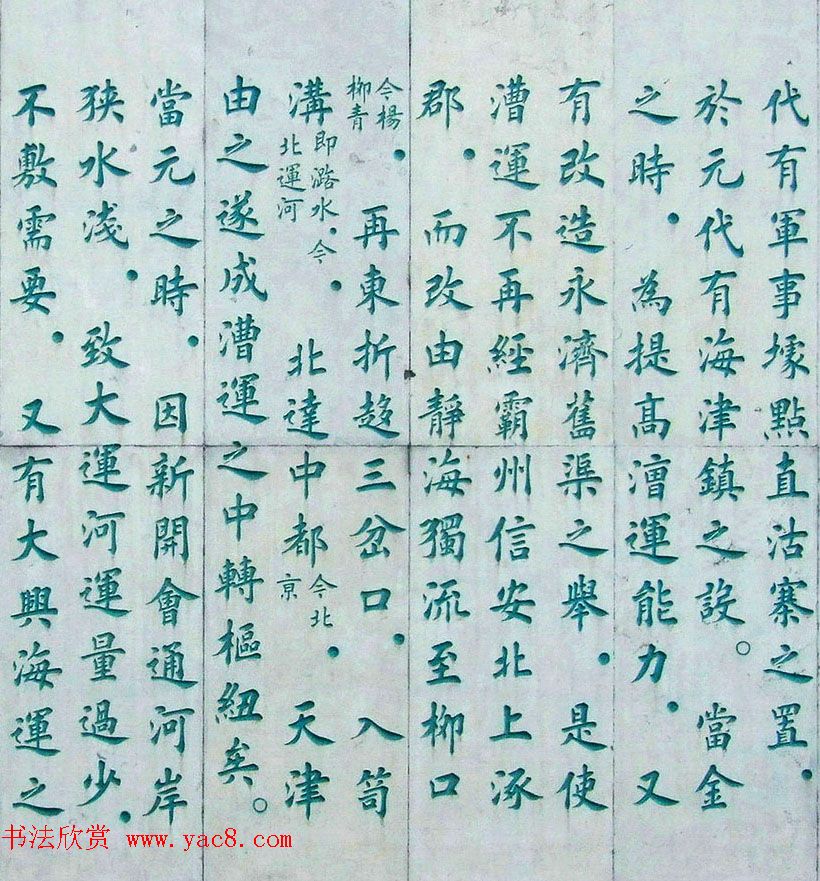 代有軍事據點直沽寨之置．
於元代有海津鎮之設。當金
之時．為提高漕運能力．又
有改造永濟舊渠之舉．是使
漕運不再經霸州信安北上涿
郡．而改由靜海獨流至柳口
今楊柳青．再東折趨三岔口．入笥
溝即潞水．今北運河．北達中都今北京．天津
由之遂成漕運之中轉樞紐矣。
當元之時．因新開會通河岸
狹水浅．致大運河運量過少．
不敷需要．又有大興海運之
书法欣赏 www.yac8.com